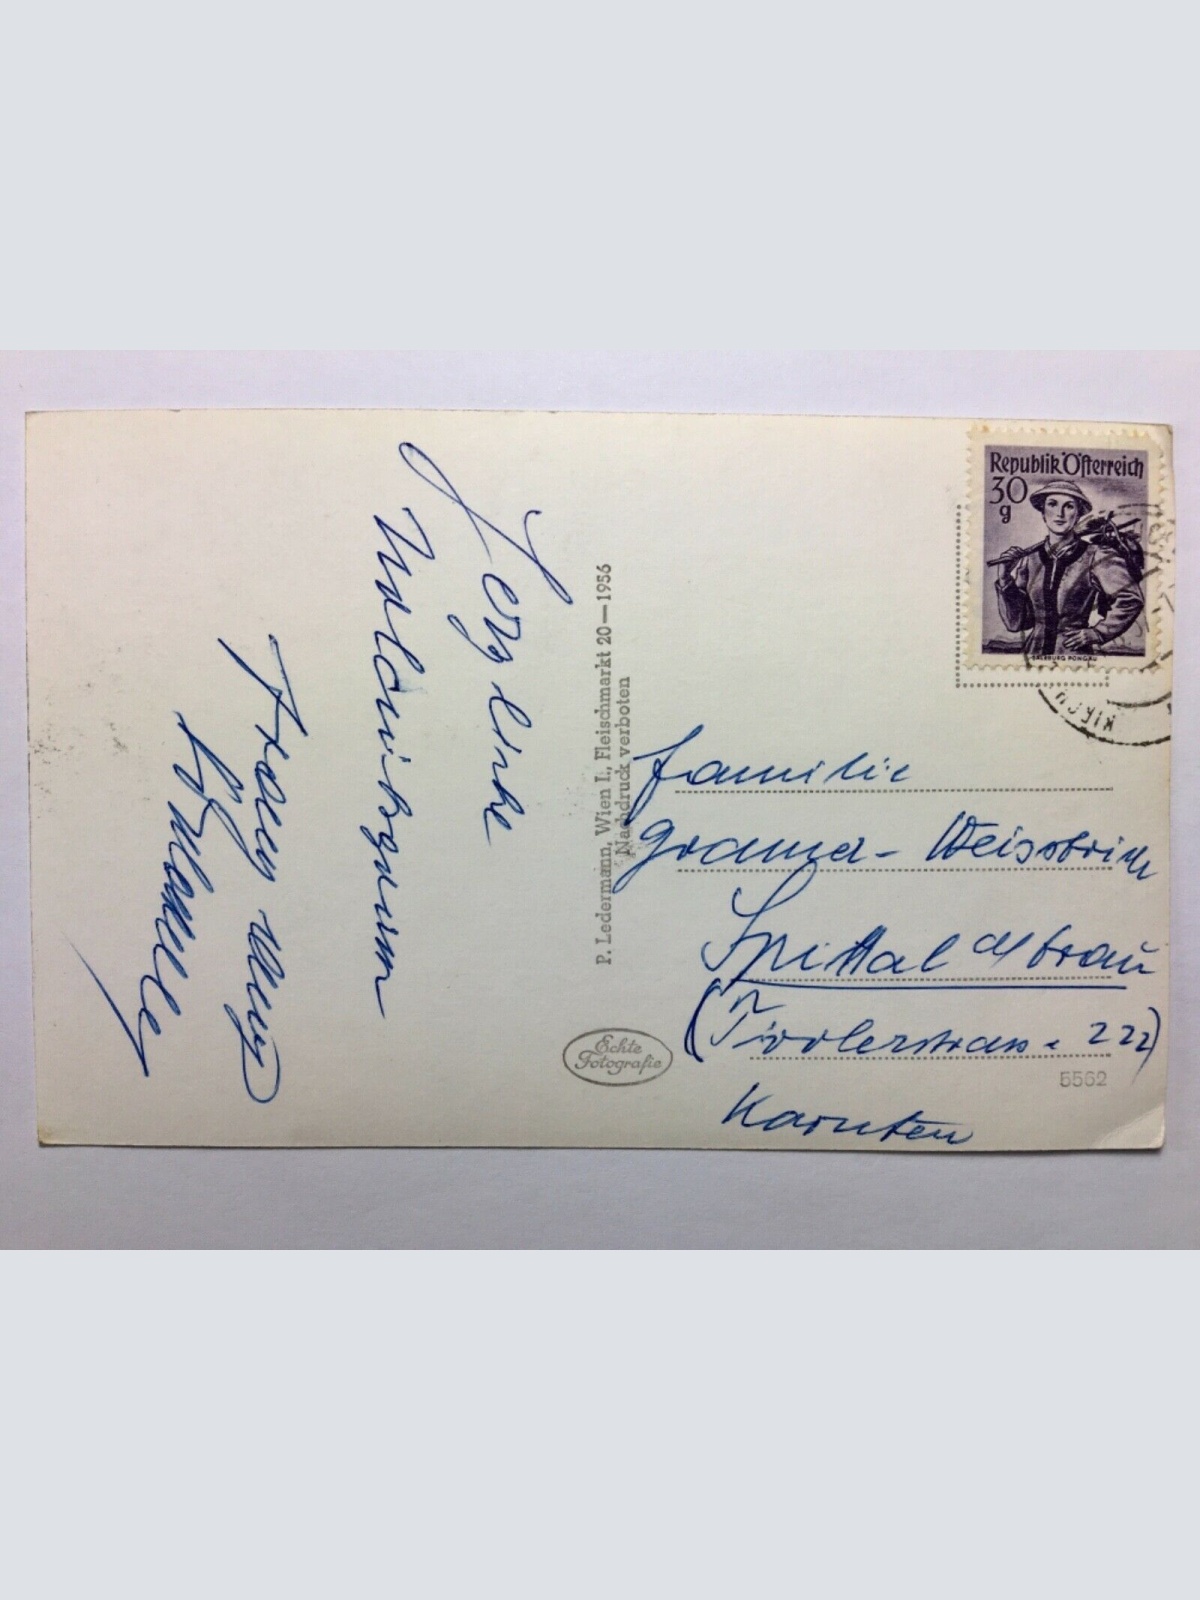 Herzliche
Franz und
P. Ledermann, Wien I., Fleischmarkt 20—1956
Nachdruck verboten
Echte
Fotografie
Republik Österreich
30
g
SALZBURG PONGAU
Familie
Gramer - Weissbrich
Spittal a/ Drau
(Tirolerstrasse 222)
5562
Kärnten